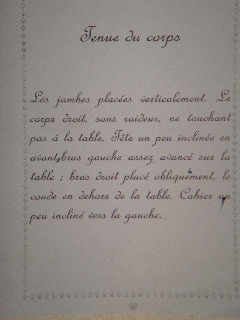 Tenue du corps
Les jambes placées verticalement. Le
corps droit, sans raideur, ne touchant
pas à la table. Tête un peu inclinée en
avant, bras gauche assez avancé sur la
table ; bras droit placé obliquement, le
coude en dehors de la table. Cahier un
peu incliné vers la gauche.